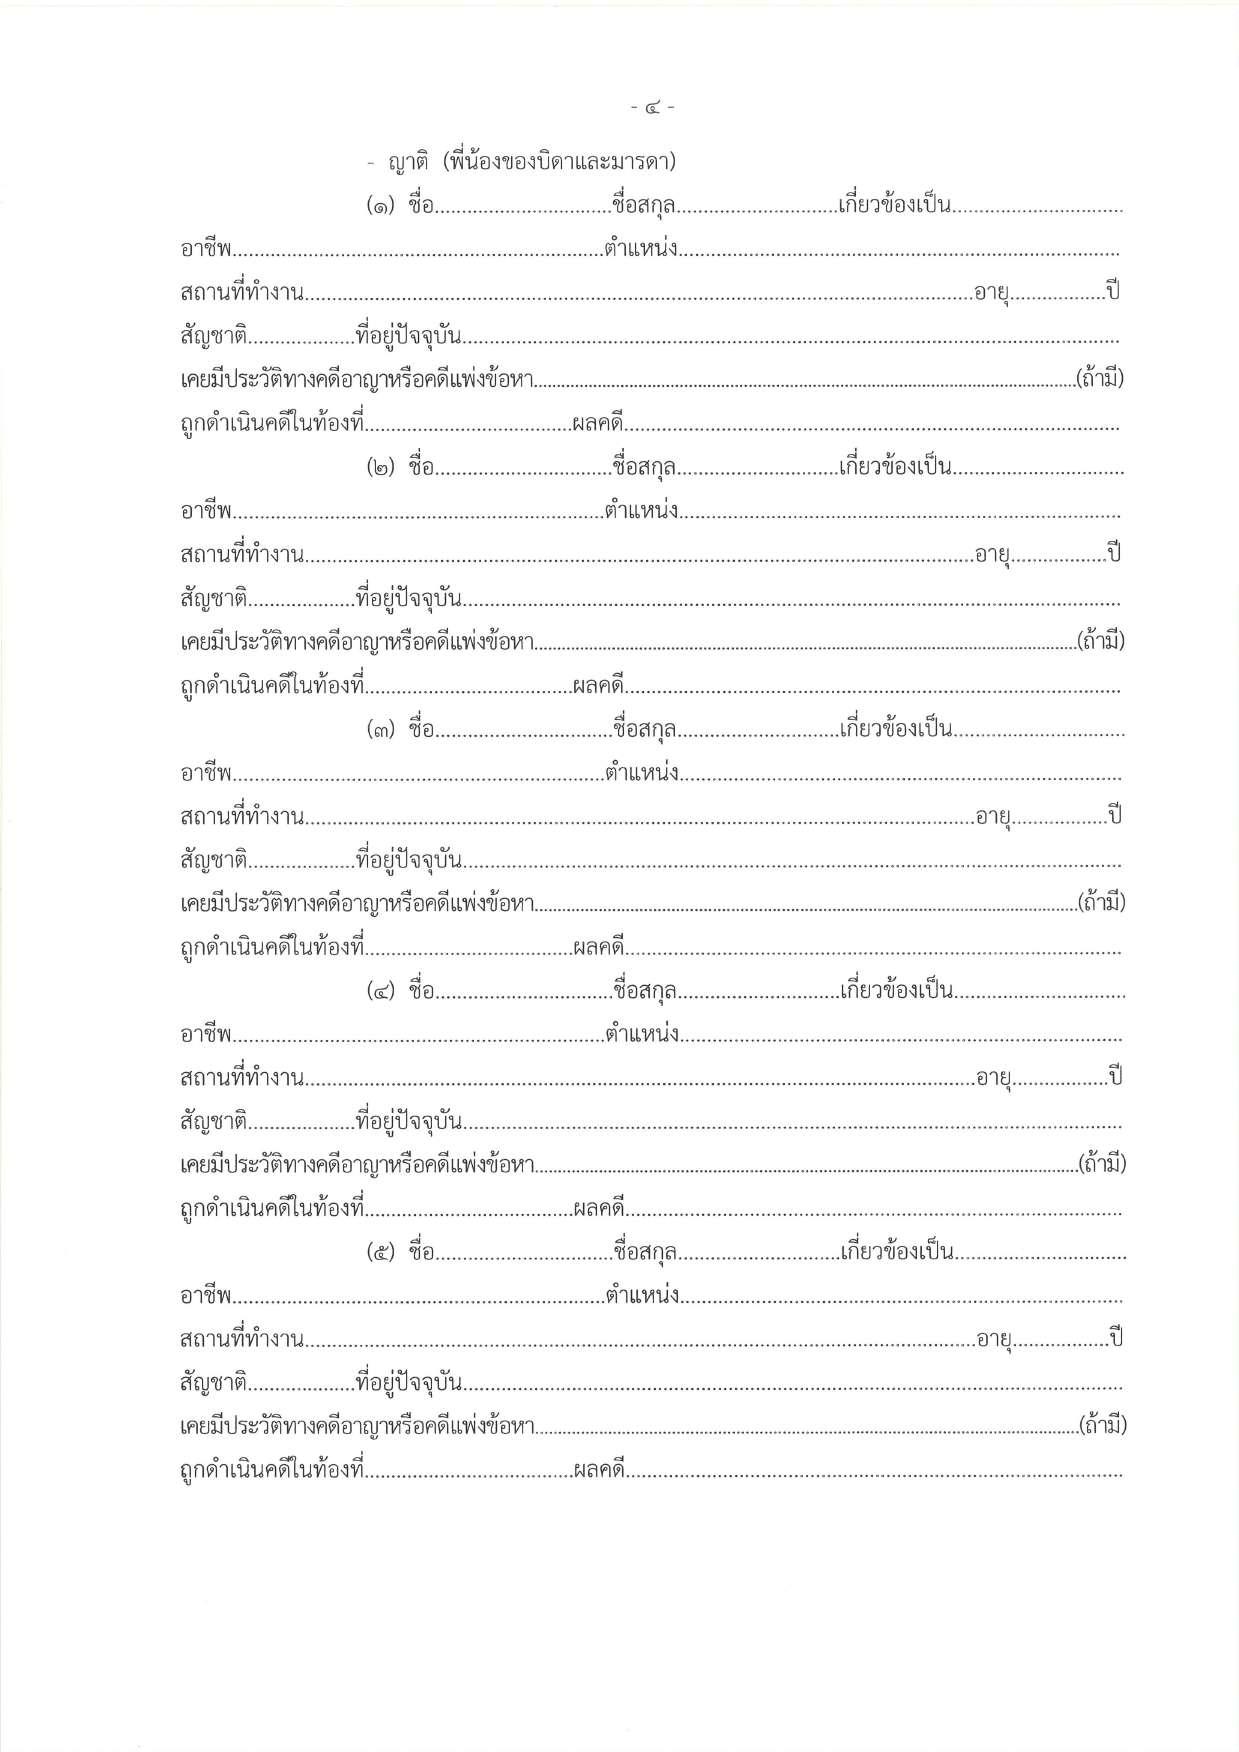 - ๔ -
- ญาติ (พี่น้องของบิดาและมารดา)
(๑) ชื่อ................................ชื่อสกุล.............................เกี่ยวข้องเป็น...............................
อาชีพ...................................................................ตำแหน่ง................................................................................
สถานที่ทำงาน.........................................................................................................................อายุ.................ปี
สัญชาติ...................ที่อยู่ปัจจุบัน.......................................................................................................................
เคยมีประวัติทางคดีอาญาหรือคดีแพ่งข้อหา....................................................................................................(ถ้ามี)
ถูกดำเนินคดีในท้องที่.....................................ผลคดี..........................................................................................
(๒) ชื่อ................................ชื่อสกุล.............................เกี่ยวข้องเป็น...............................
อาชีพ...................................................................ตำแหน่ง................................................................................
สถานที่ทำงาน.........................................................................................................................อายุ.................ปี
สัญชาติ...................ที่อยู่ปัจจุบัน.......................................................................................................................
เคยมีประวัติทางคดีอาญาหรือคดีแพ่งข้อหา....................................................................................................(ถ้ามี)
ถูกดำเนินคดีในท้องที่.....................................ผลคดี..........................................................................................
(๓) ชื่อ................................ชื่อสกุล.............................เกี่ยวข้องเป็น...............................
อาชีพ...................................................................ตำแหน่ง................................................................................
สถานที่ทำงาน.........................................................................................................................อายุ.................ปี
สัญชาติ...................ที่อยู่ปัจจุบัน.......................................................................................................................
เคยมีประวัติทางคดีอาญาหรือคดีแพ่งข้อหา....................................................................................................(ถ้ามี)
ถูกดำเนินคดีในท้องที่.....................................ผลคดี..........................................................................................
(๔) ชื่อ................................ชื่อสกุล.............................เกี่ยวข้องเป็น...............................
อาชีพ...................................................................ตำแหน่ง................................................................................
สถานที่ทำงาน.........................................................................................................................อายุ.................ปี
สัญชาติ...................ที่อยู่ปัจจุบัน.......................................................................................................................
เคยมีประวัติทางคดีอาญาหรือคดีแพ่งข้อหา....................................................................................................(ถ้ามี)
ถูกดำเนินคดีในท้องที่.....................................ผลคดี..........................................................................................
(๕) ชื่อ................................ชื่อสกุล.............................เกี่ยวข้องเป็น...............................
อาชีพ...................................................................ตำแหน่ง................................................................................
สถานที่ทำงาน.........................................................................................................................อายุ.................ปี
สัญชาติ...................ที่อยู่ปัจจุบัน.......................................................................................................................
เคยมีประวัติทางคดีอาญาหรือคดีแพ่งข้อหา....................................................................................................(ถ้ามี)
ถูกดำเนินคดีในท้องที่.....................................ผลคดี..........................................................................................